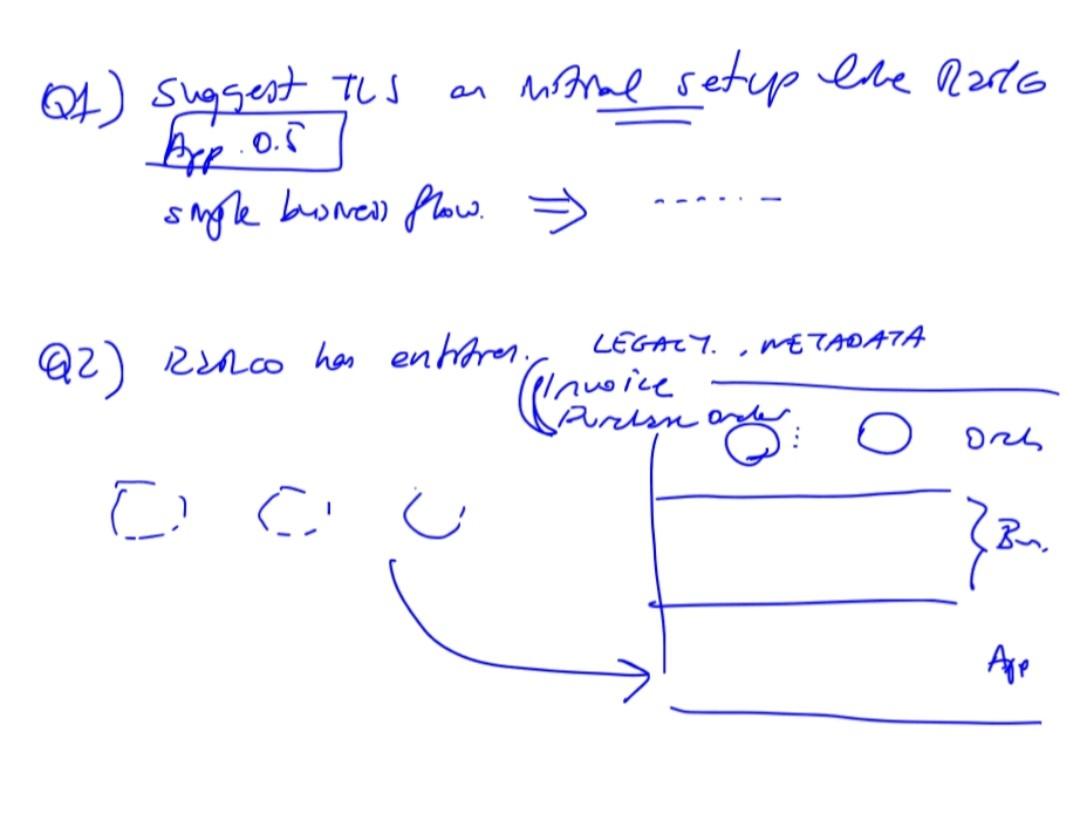 Q1) Suggest TLS on initial setup like
App 0.5
single business flow. ⇒ ......
Q2) has entities. LEGACY. , METADATA
Invoice
Purchase order
Orch
Bus.
App